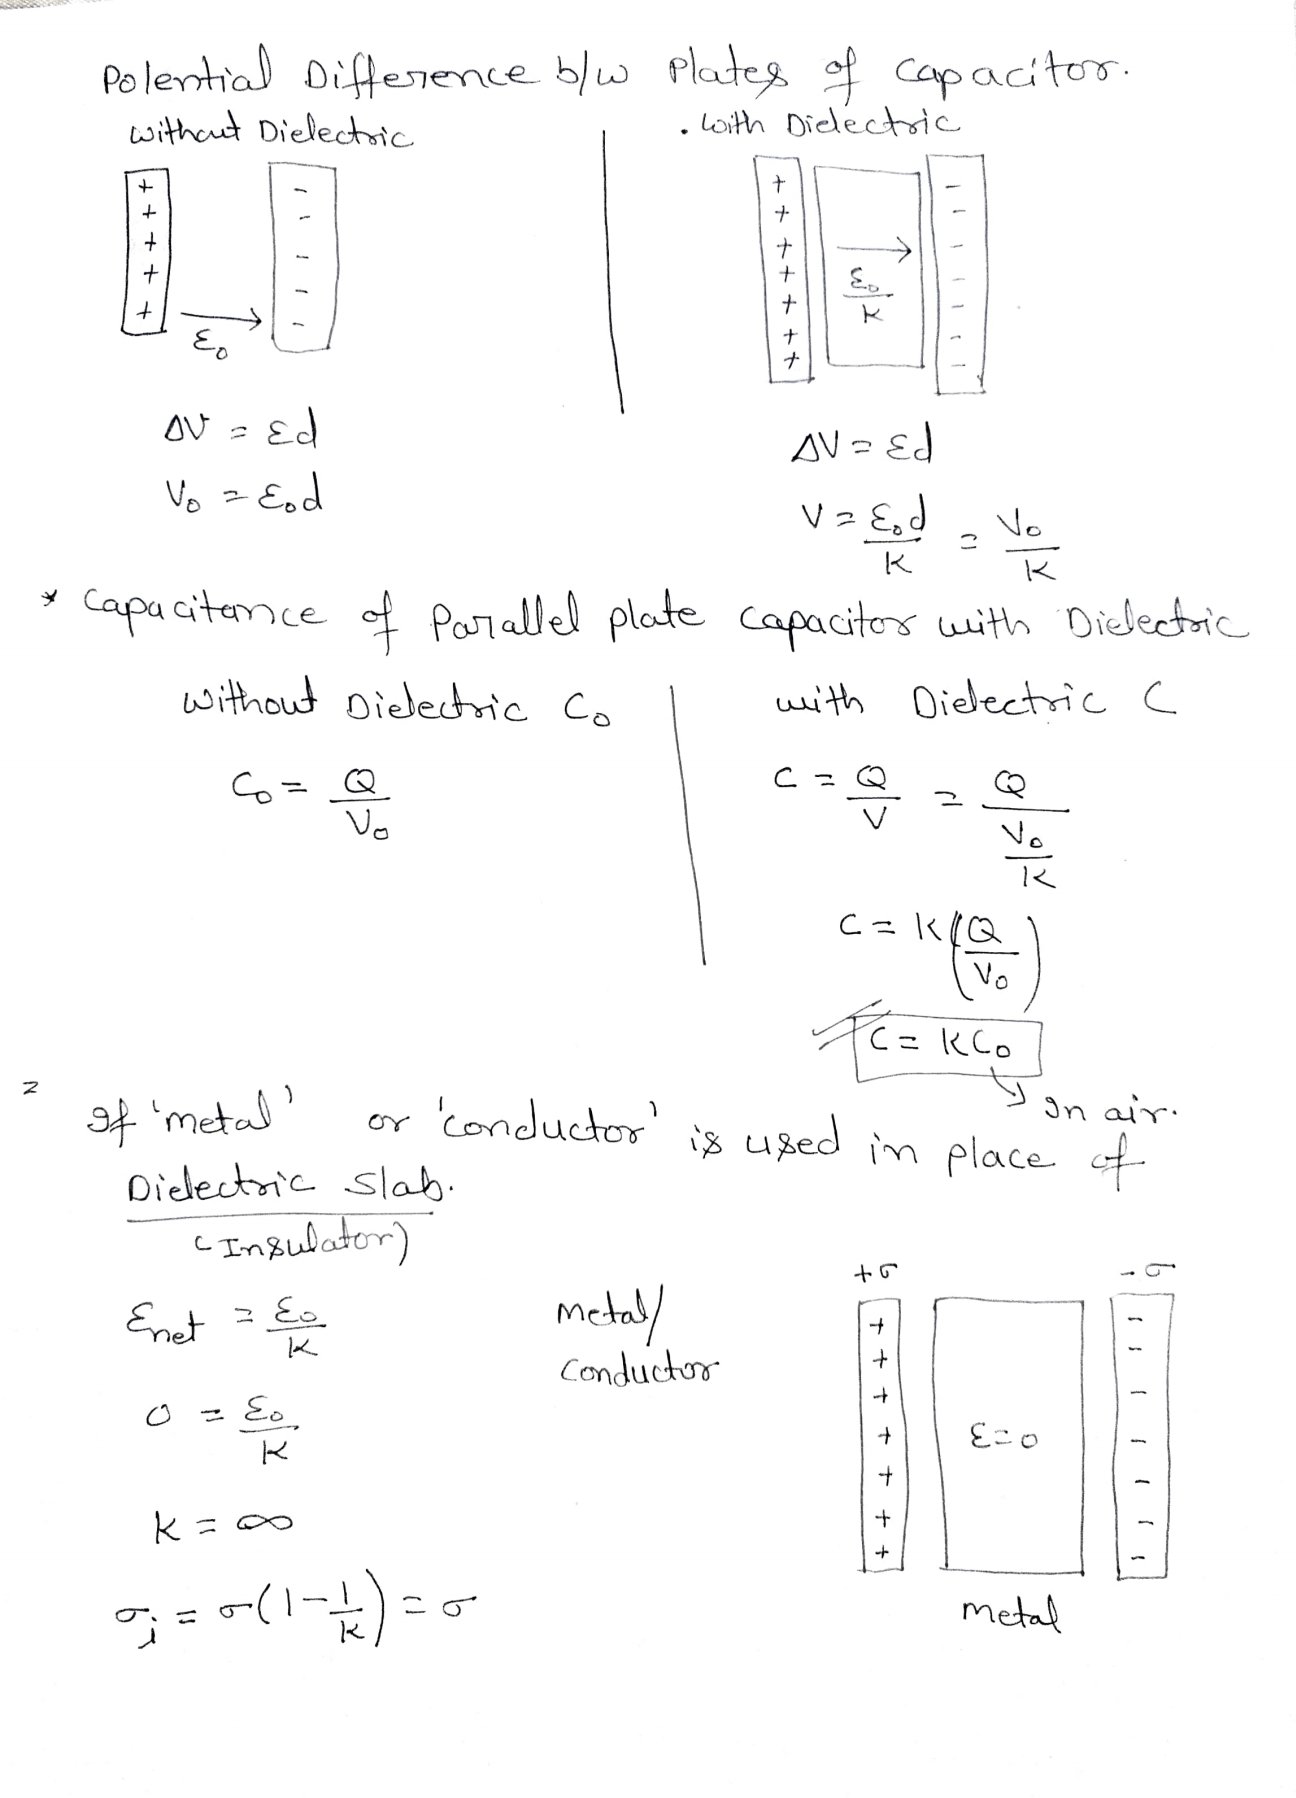 Potential Difference b/w Plates of Capacitor.
Without Dielectric
+ + + + +
- - - - -
ε₀
ΔV = εd
V₀ = ε₀d
. With Dielectric
+ + + + + + +
ε₀/K
- - - - - - -
ΔV = εd
V = ε₀d/K = V₀/K
* Capacitance of Parallel plate capacitor with Dielectric
Without Dielectric C₀
C₀ = Q/V₀
with Dielectric C
C = Q/V = Q/(V₀/K)
C = K(Q/V₀)
C = KC₀
In air.
If 'metal' or 'conductor' is used in place of
Dielectric Slab.
(Insulator)
εnet = ε₀/K
0 = ε₀/K
K = ∞
σi = σ(1-1/K) = σ
Metal/
Conductor
+σ
-σ
+ + + + + + +
ε=0
- - - - - - -
Metal